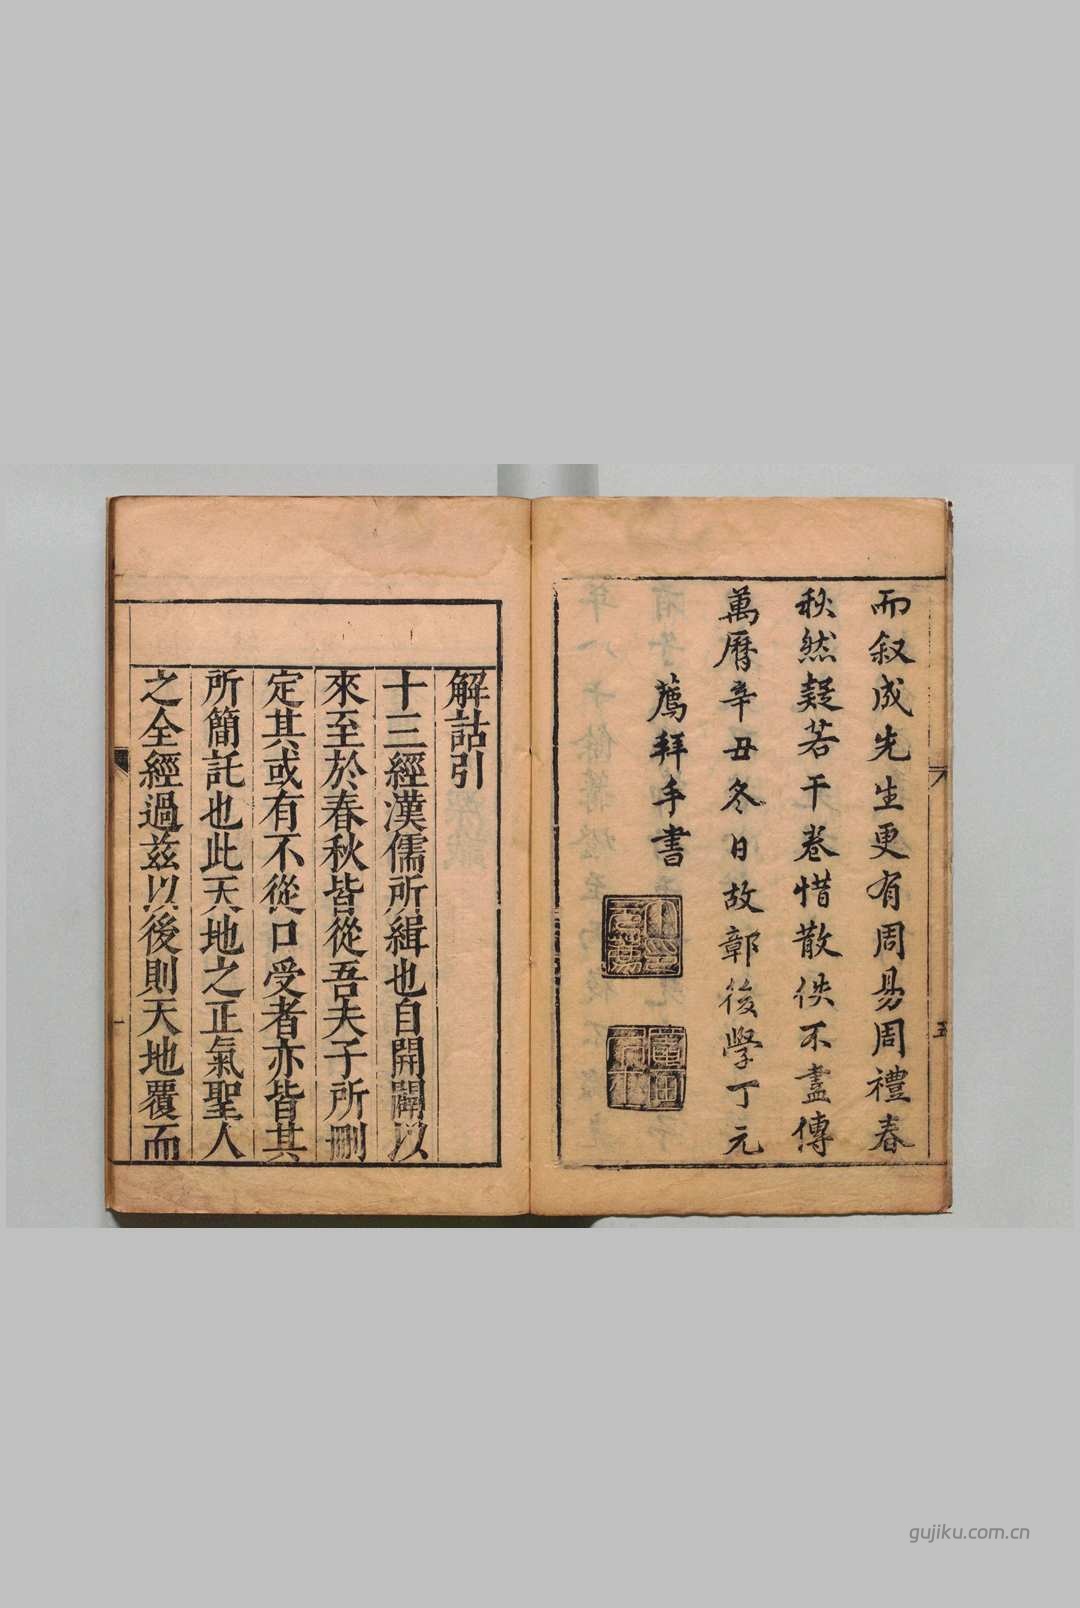 而叙成先生更有周易周禮春
秋然疑若干卷惜散佚不盡傳
萬曆辛丑冬日故鄣後學丁元
薦拜手書
五
解詁引
十三經漢儒所緝也自開闢以
來至於春秋皆從吾夫子所刪
定其或有不從口受者亦皆其
所簡託也此天地之正氣聖人
之全經過兹以後則天地覆而
一
gujiku.com.cn